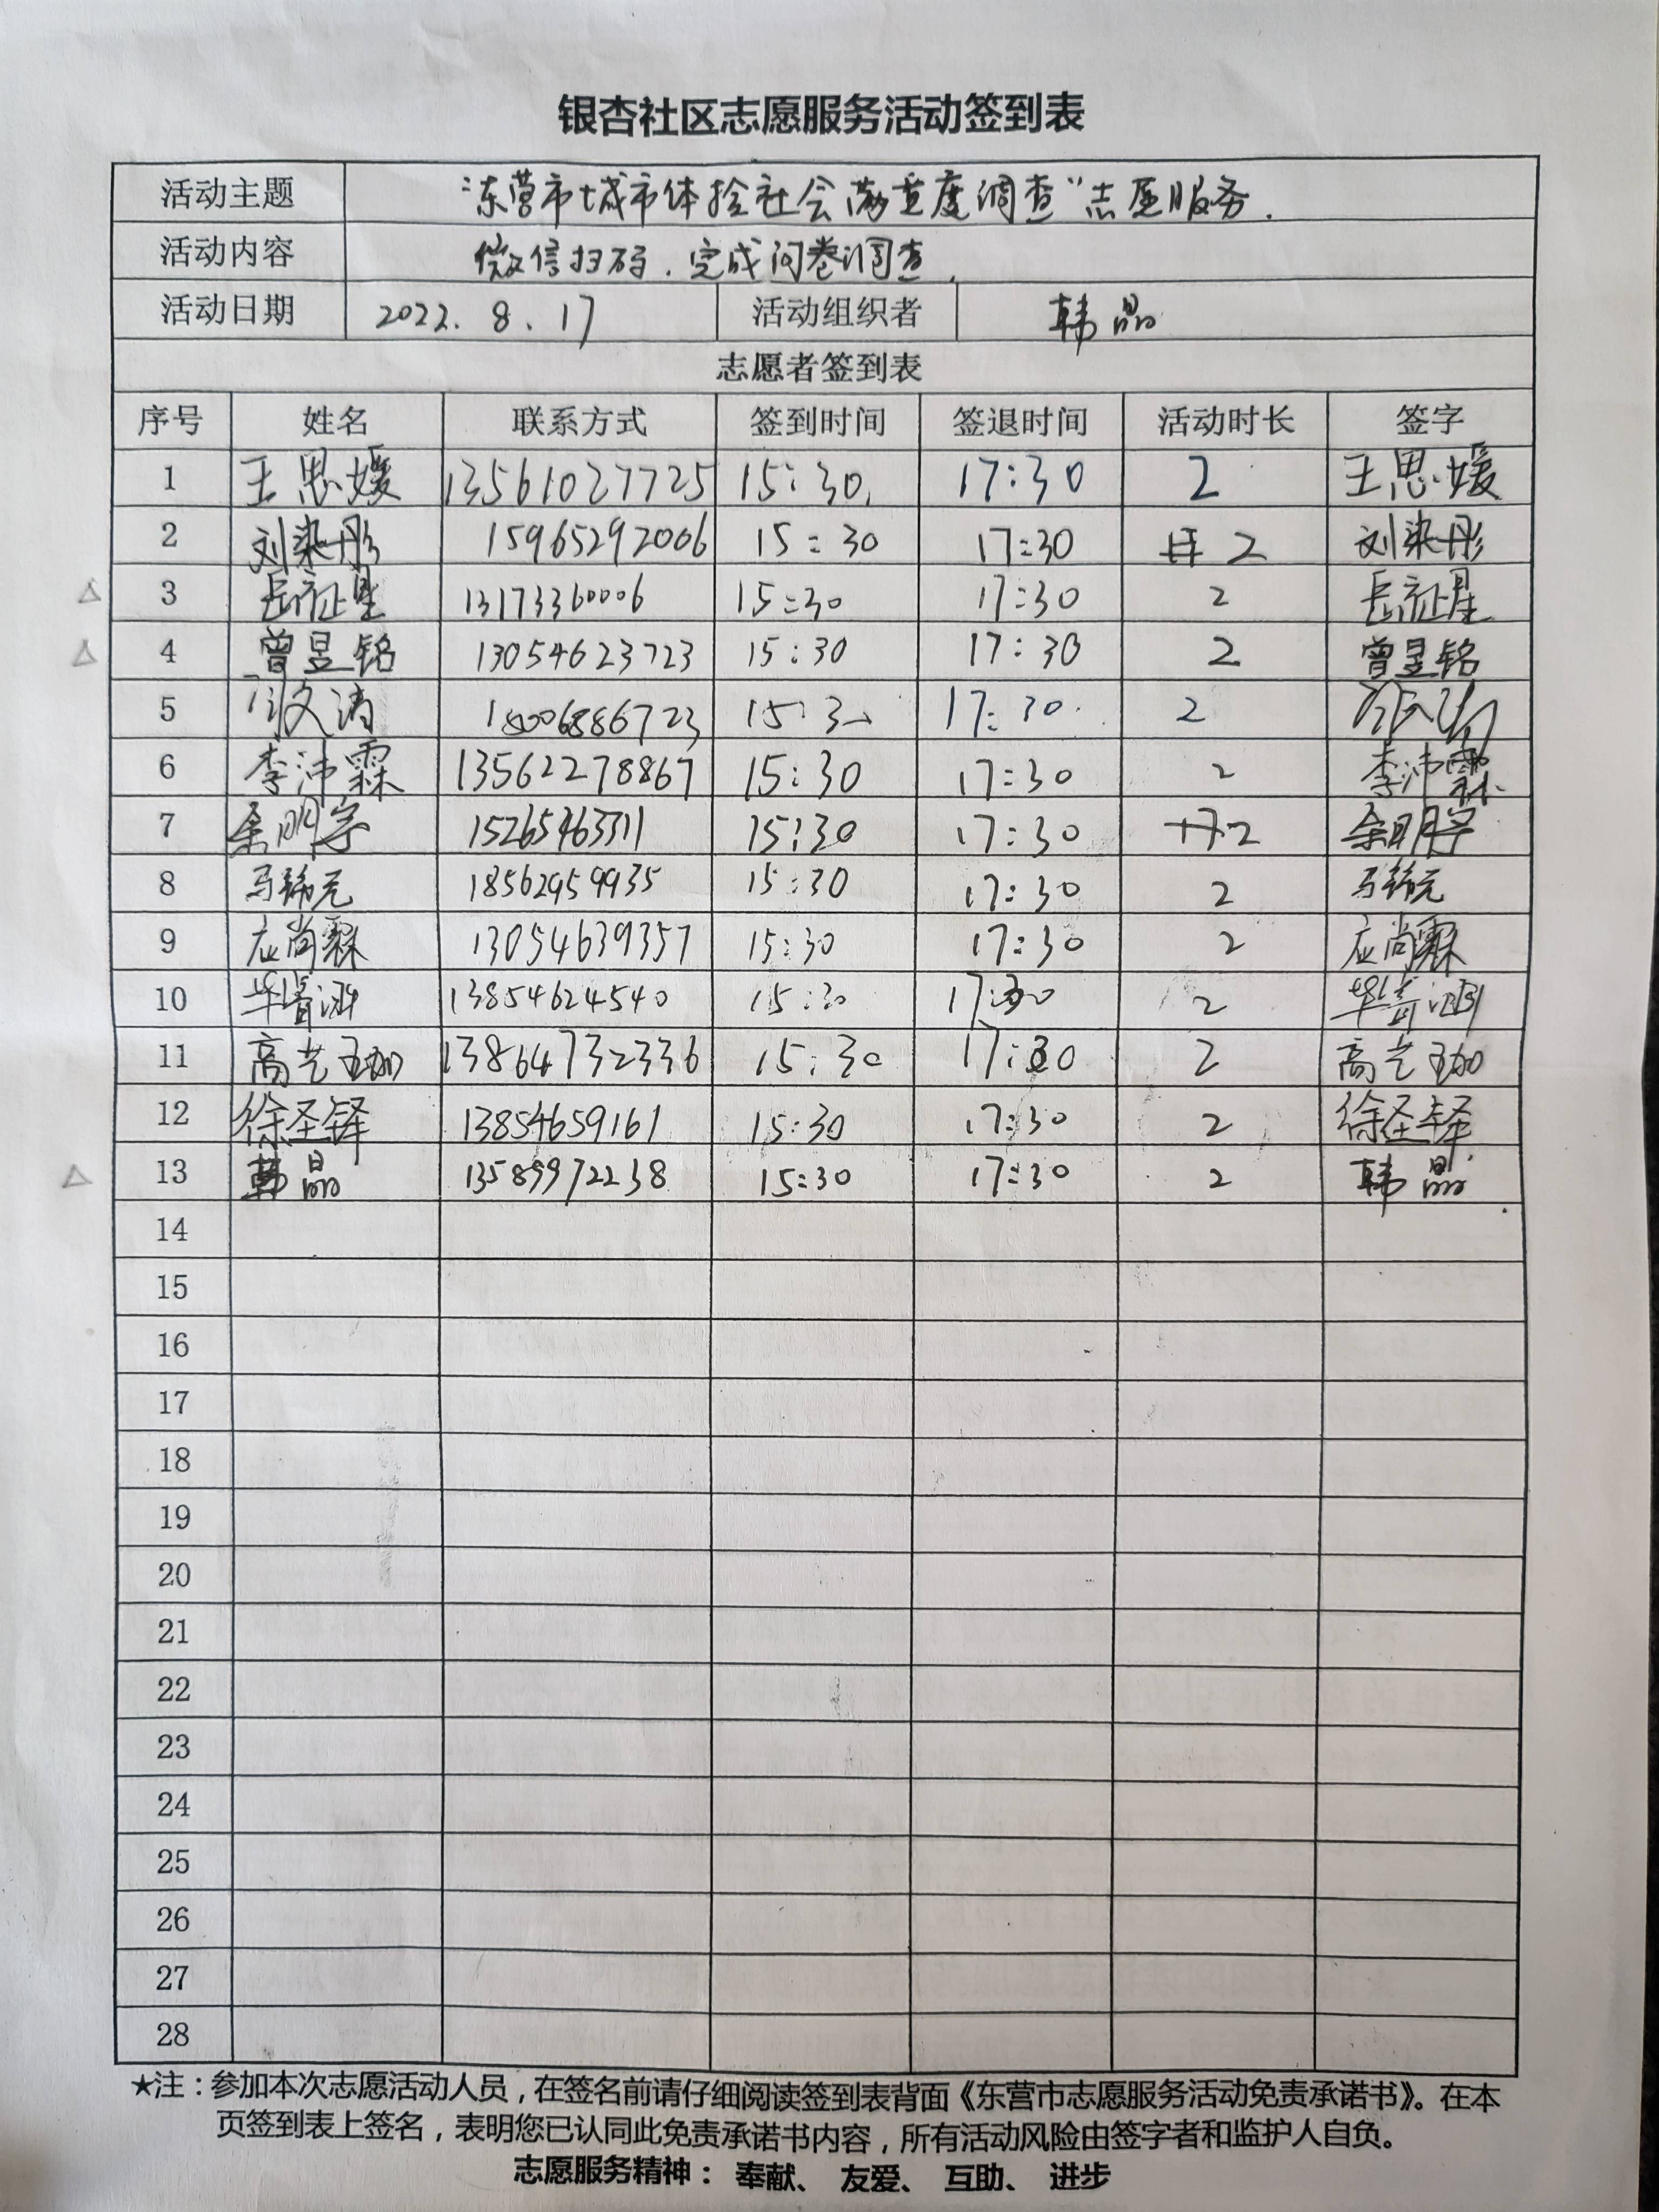 银杏社区志愿服务活动签到表
活动主题 “东营市城市体捡社会满意度调查”志愿服务.
活动内容 微信扫码.完成问卷调查.
活动日期 2022.8.17 活动组织者 韩晶
志愿者签到表
序号 姓名 联系方式 签到时间 签退时间 活动时长 签字
1 王思媛 13561027725 15:30. 17:30 2 王思媛
2 刘染彤 15965292006 15:30 17:30 2 刘染彤
3 13173360006 15:30 17:30 2
4 曾昱铭 13054623723 15:30 17:30 2 曾昱铭
5 文涛 18006886723 15:30 17:30. 2
6 李沛霖 13562278867 15:30 17:30 2 李沛霖
7 余明宇 15:30 17:30 2 余明宇
8 马稀元 18562959935 15:30 17:30 2 马稀元
9 应尚霖 13054639357 15:30 17:30 2 应尚霖
10 13854624540 15:30 17:30 2
11 高艺珈 13864732336 15:30 17:30 2 高艺珈
12 徐圣铎 13854659161 15:30 17:30 2 徐圣铎
13 韩晶 13589972238 15:30 17:30 2 韩晶
14
15
16
17
18
19
20
21
22
23
24
25
26
27
28
★注：参加本次志愿活动人员，在签名前请仔细阅读签到表背面《东营市志愿服务活动免责承诺书》。在本
页签到表上签名，表明您已认同此免责承诺书内容，所有活动风险由签字者和监护人自负。
志愿服务精神： 奉献、 友爱、 互助、 进步